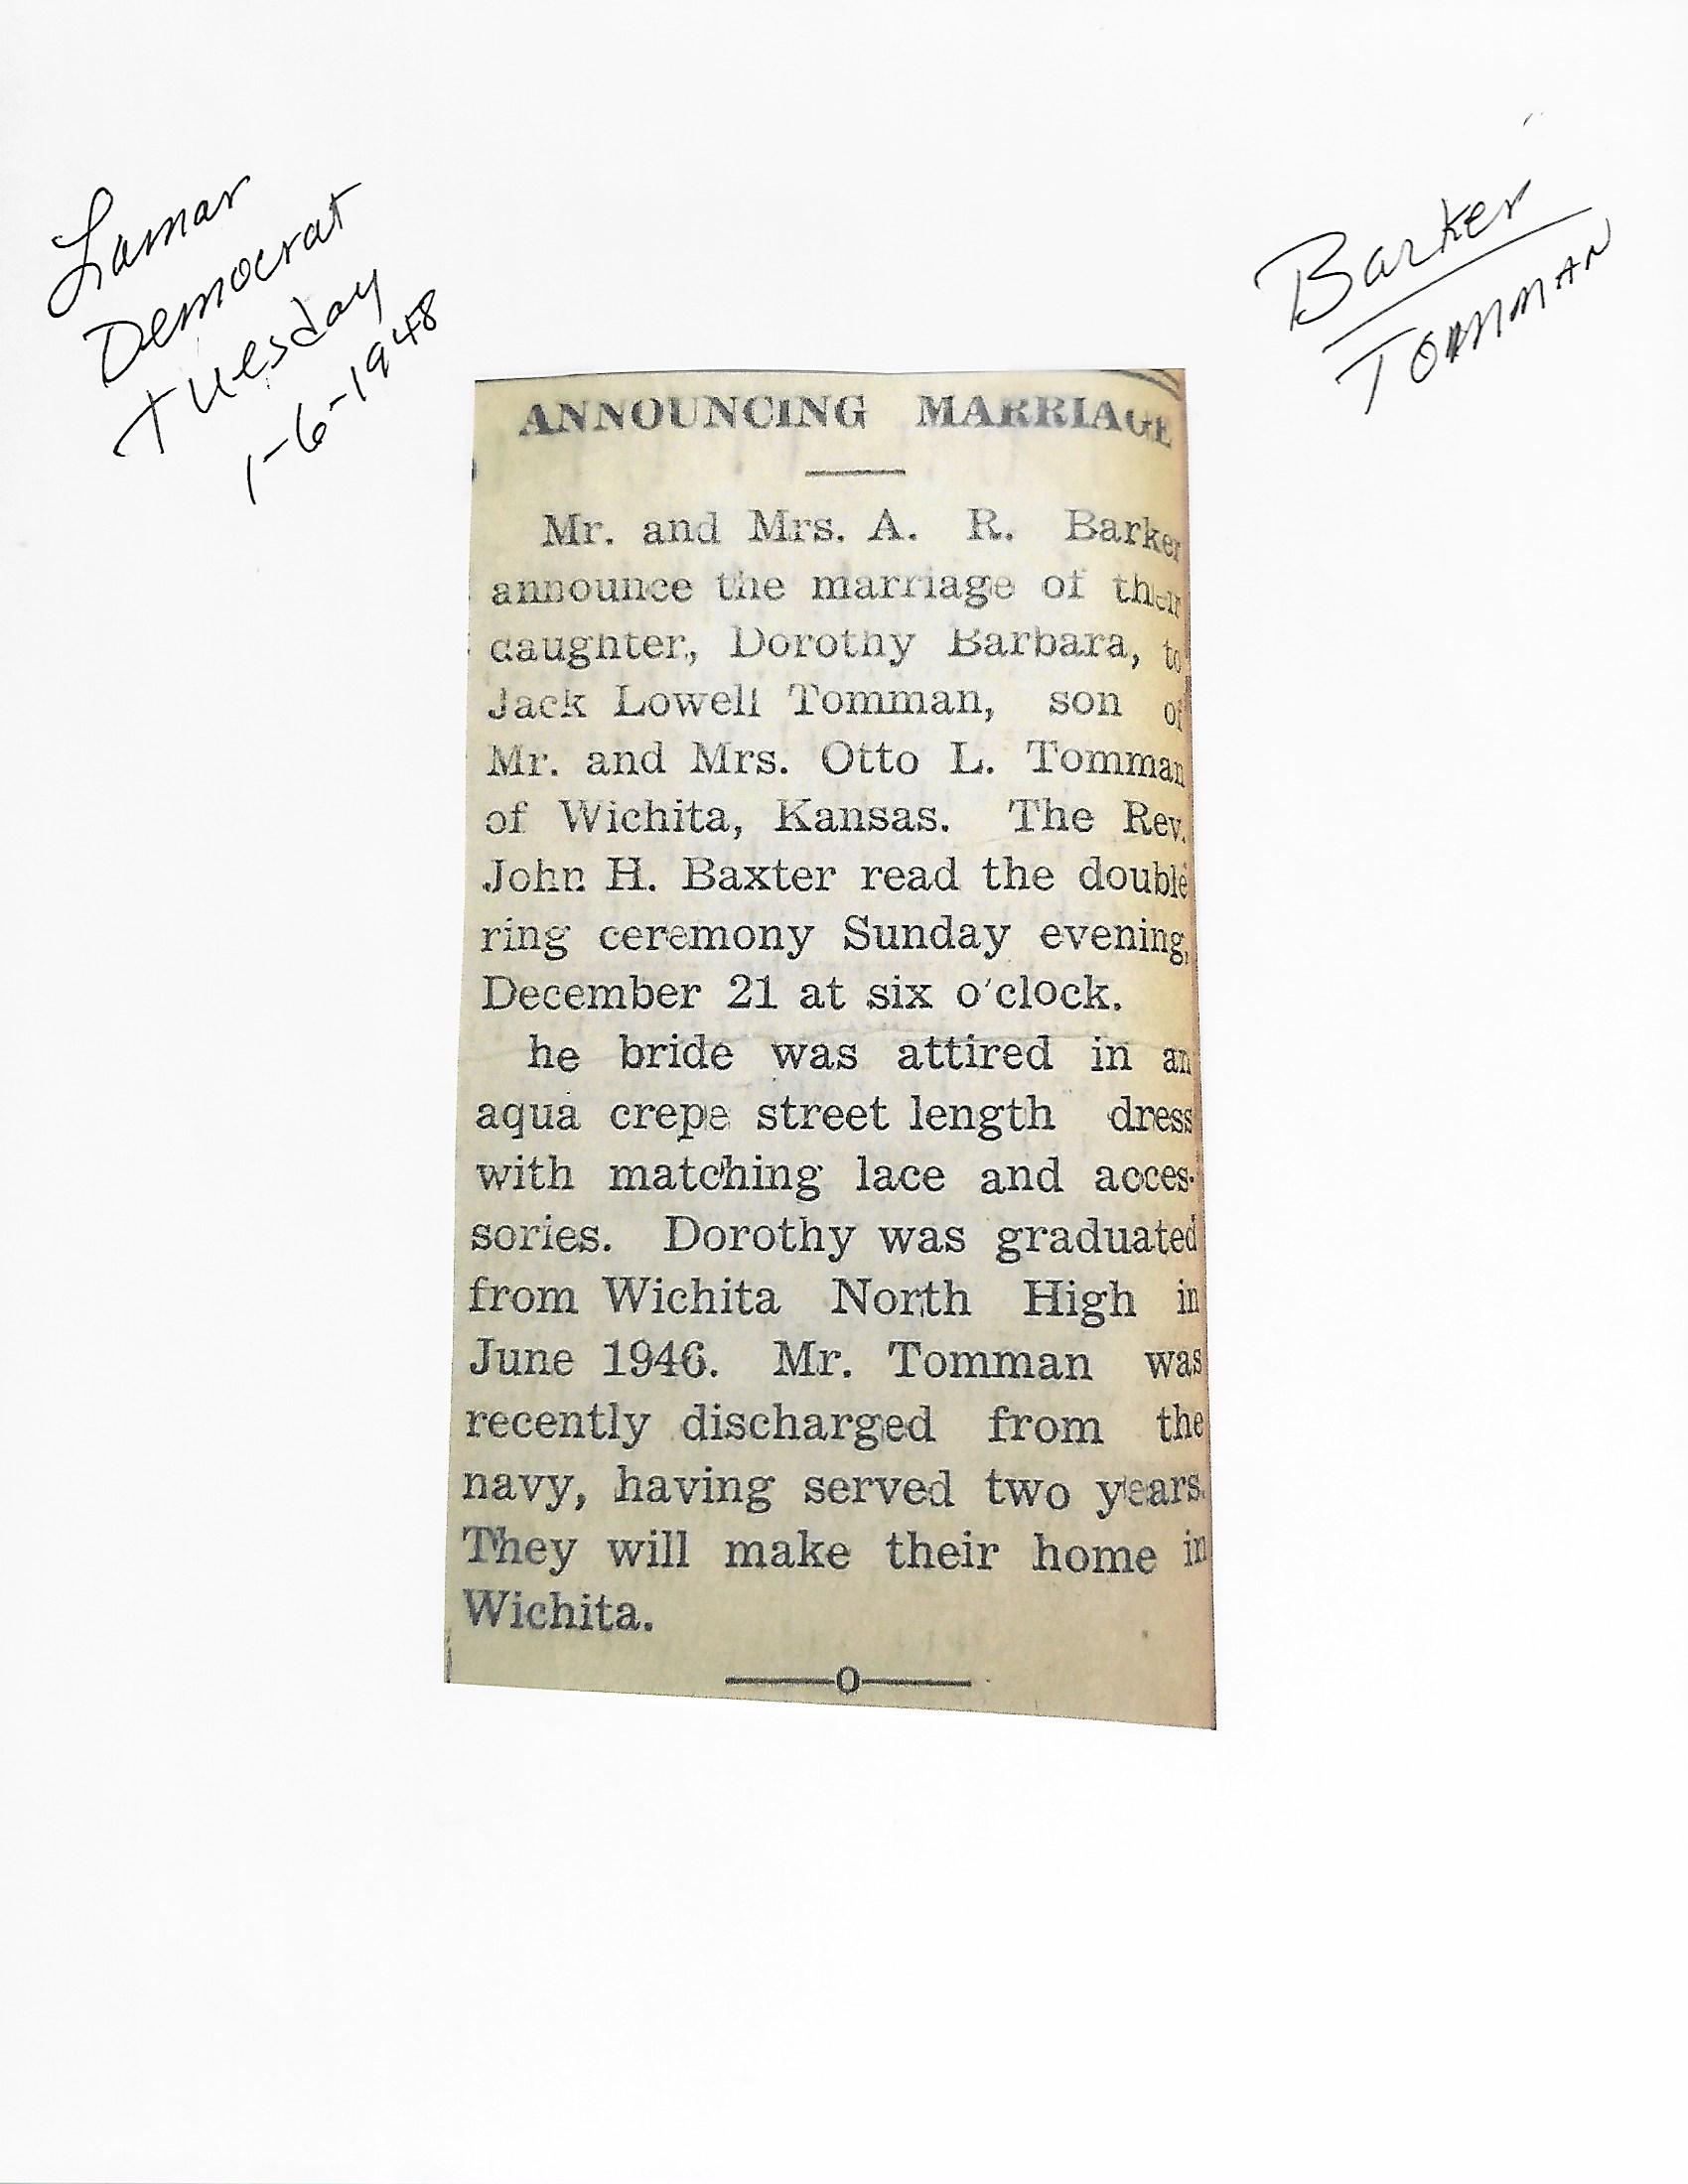 Lamar
Democrat
Tuesday
1-6-1948
Barker
TOMMAN
ANNOUNCING MARRIAGE
Mr. and Mrs. A. R. Barker
announce the marriage of their
daughter, Dorothy Barbara, to
Jack Lowell Tomman, son of
Mr. and Mrs. Otto L. Tomman
of Wichita, Kansas. The Rev.
John H. Baxter read the double
ring ceremony Sunday evening,
December 21 at six o'clock.
he bride was attired in an
aqua crepe street length dress
with matching lace and acces-
sories. Dorothy was graduated
from Wichita North High in
June 1946. Mr. Tomman was
recently discharged from the
navy, having served two years.
They will make their home in
Wichita.
O